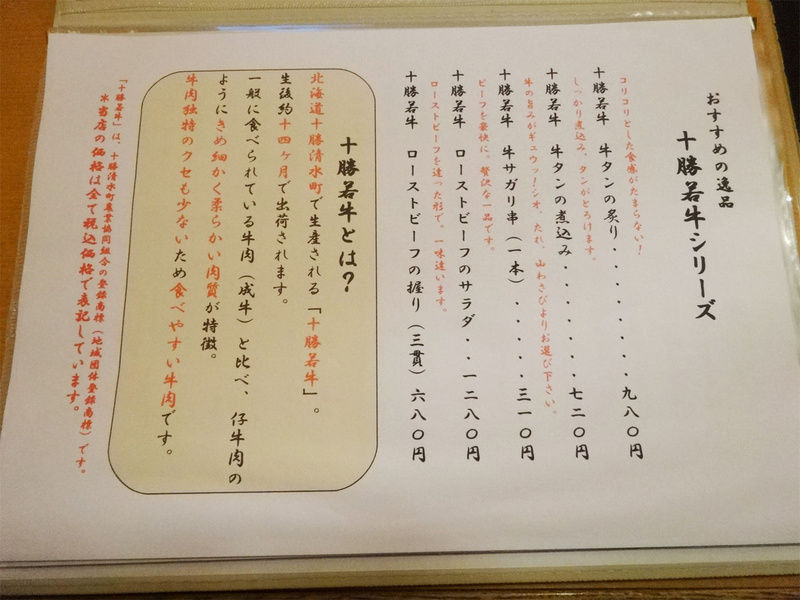 おすすめの逸品
十勝若牛シリーズ
コリコリとした食感がたまらない！
十勝若牛　牛タンの炙り・・・・・・・・九八〇円
しっかり煮込み、タンがとろけます。
十勝若牛　牛タンの煮込み・・・・・・・七二〇円
牛の旨みがギュウッ！シオ、たれ、山わさびよりお選び下さい。
十勝若牛　牛サガリ串（一本）・・・・・三一〇円
ビーフを豪快に。贅沢な一品です。
十勝若牛　ローストビーフのサラダ・・一二八〇円
ローストビーフを違った形で。一味違います。
十勝若牛　ローストビーフの握り（三貫）六八〇円
十勝若牛とは？
北海道十勝清水町で生産される「十勝若牛」。
生後約十四ヶ月で出荷されます。
一般に食べられている牛肉（成牛）と比べ、仔牛肉の
ようにきめ細かく柔らかい肉質が特徴。
牛肉独特のクセも少ないため食べやすい牛肉です。
「十勝若牛」は、十勝清水町農業協同組合の登録商標（地域団体登録商標）です。
※当店の価格は全て税込価格で表記しています。